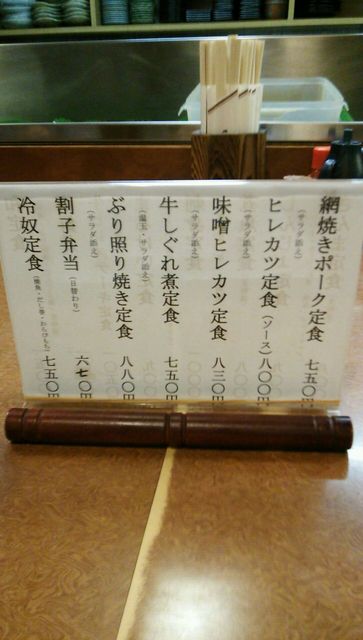 網焼きポーク定食 七五〇円
(サラダ添え)
ヒレカツ定食(ソース)八〇〇円
(サラダ添え)
味噌ヒレカツ定食 八三〇円
(サラダ添え)
牛しぐれ煮定食 七五〇円
(温玉・サラダ添え)
ぶり照り焼き定食 八八〇円
(サラダ添え)
割子弁当(日替わり) 六七〇円
冷奴定食(焼魚・だし巻・わらびもち)七五〇円